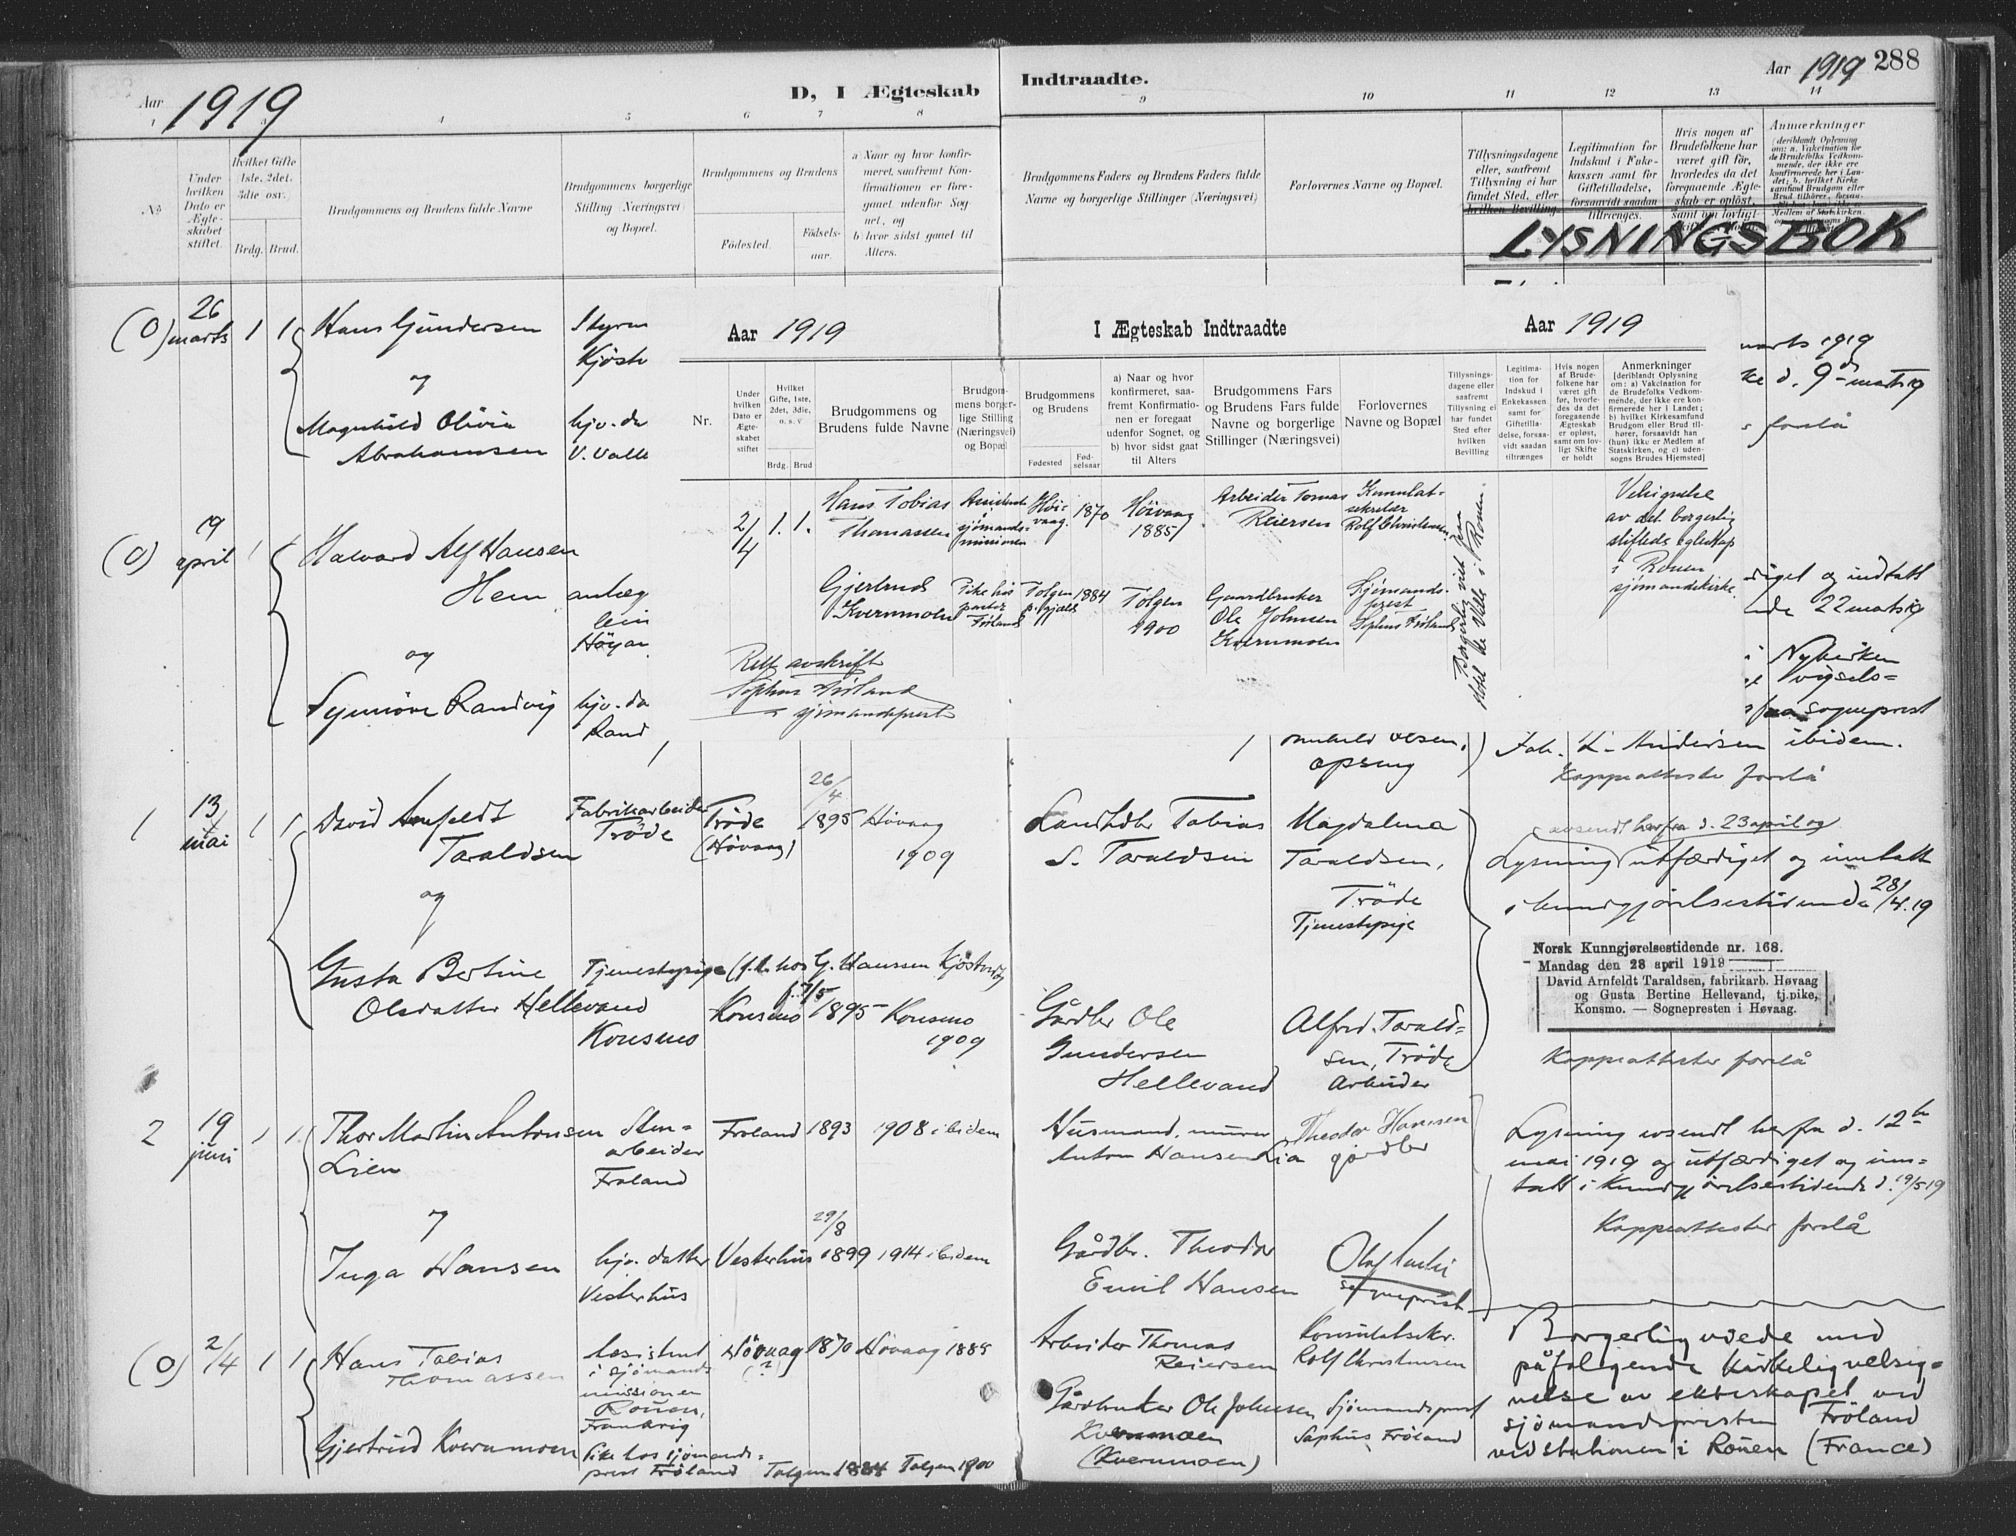 Aar 1919
D, I Ægteskab Indtraadte.
Aar 1919 288
1 4 5 6 7 8 9 10 11 12 13 14
No
Under hvilken Dato er Ægteskabet stiftet.
Hvilket Gifte 1ste. 2det. 3die osv.
Brdg. Brud.
Brudgommens og Brudens fulde Navne
Brudgommens borgerlige Stilling (Næringsvei) og Bopæl.
Brudgommens og Brudens
Födested.
Födselsaar.
a Naar og hvor konfirmeret, saafremt Konfirmationen er foregaaet udenfor Sognet, og
b hvor sidst gaaet til Alters.
Brudgommens Faders og Brudens Faders fulde Navne og borgerlige Stillinger (Næringsvei)
Forlovernes Navne og Bopæl.
Tillysningsdagene eller, saafremt Tillysning ei har fundet Sted, efter hvilken Bevilling.
Legitimation for Indskud i Enkekassen samt for Giftetilladelse, forsaavidt saadan tiltrænges.
Hvis nogen af Brudefolkene har været gift för, hvorledes da det foregaaende Ægteskab er oplöst,
Anmærkninger
LYSNINGSBOK
(0) 26 marts 1 1 Hans Gundersen
og
Magnhild Olivia
Abrahamsen
Styrm
Kjöst
hjv. da
V. Valle
marts 1919
ke d. 9de marts 19
forslå
(0) 19 april 1 1
Halvard Alf Hansen
Hem
og
Synnöve Randvig
anlæg
Höyan
hjv. da
Rand
diget og indtatt
nde 22 marts 19
i Nykirken
vigsels=
fra sogneprest
Joh. L. Andersen ibidem.
Koppeattester forslå
Aar 1919 I Ægteskab Indtraadte Aar 1919
Nr.
Under hvilken Dato er Ægteskabet stiftet
Hvilket Gifte, 1ste, 2det, 3die, o. s. v
Brdg. Brud
Brudgommens og Brudens fulde Navne
Brudgommens borgerlige Stilling (Næringsvei) og Bopæl
Brudgommens og Brudens
Fødested Fødselsaar
a) Naar og hvor konfirmeret, saafremt Konfirmationen er foregaaet udenfor Sognet, og
b) hvor sidst gaaet til Alters
Brudgommens Fars og Brudens Fars fulde Navne og borgerlige Stillinger (Næringsvei)
Forlovernes Navne og Bopæl
Tillysningsdagene eller saafremt Tillysning ei har fundet Sted efter hvilken Bevilling
Legitimation for Indskud i Enkekassen samt for Giftetilladelse, forsaavidt saadan tiltrænges
Hvis nogen af Brudefolkene har været gift før, hvorledes da det foregaaende Ægteskab er opløst, samt om lovligt Skifte er holdt
Anmerkninger
[deriblandt Oplysning om: a) Vakcination for de Brudefolks Vedkommende, der ikke ere konfirmerede her i Landet; b) hvilket Kirkesamfund Brudgom eller Brud tilhører, forsaavidt han (hun) ikke er Medlem af Statskirken, og c) udensogns Brudes Hjemsted]
2/4 1. 1. Hans Tobias Thomassen
Assistent i sjømandsmissionen
Høivaag. 1870
Høivaag 1885
Arbeider Tomas Reiersen
Konsulatsekretær Rolf Christensen
Velsignelse av det borgerlig stiftede egteskap i Rouen sjømandskirke.
Gjertrud Kvernmoen
Pike hos pastor Frøland
Tolgen p.gjæld 1884
Tolgen 1900
Gaardbruker Ole Johnsen Kvernmoen
Sjømandsprest Sophus Frøland
Borgerlig viet paa Hotel de Ville i Rouen.
Rett avskrift
Sophus Frøland
sjömandsprest
1 13 mai 1 1 David Arnfeldt
Taraldsen
og
Gusta Bertine
Olsdatter Hellevand
Fabrikarbeider Tröde
Tröde (Hövaag)
26/4 1895
Hövaag 1909
Tjenestepige (f.t. hos G. Hanssen Kjöstvedt)
Konsmo
Konsmo
f. 7/5 1895
Konsmo 1909
Landhdlr Tobias
S. Taraldsen
Magdalena
Taraldsen,
Tröde
Tjenestepige
Gårdbr Ole
Gundersen
Hellevand
Alfred Tarald=
sen, Tröde
Arbeider
avsendt herfra d. 23 april og
Lysning utfærdiget og inntatt
i kundgjörelsestidende 28/4.19
Norsk Kunngjørelsestidende nr. 168.
Mandag den 28 april 1919
David Arnfeldt Taraldsen, fabrikarb. Høvaag
og Gusta Bertine Hellevand, tj.pike,
Konsmo. — Sognepresten i Høvaag.
Koppeattester forslå
2 19 juni 1 1. Thor Martin Antonsen
Lien
og
Inga Hansen
Sten=
arbeider
Froland
Froland 1893 1908 ibidem
hjv. datter
Vesterhus
Vesterhus 29/8 1899 1914 ibidem
Husmand, murer
Anton Hansen Lia
Theodor Hansen
gårdbr
Gårdbr. Theodor
Emil Hansen
Olaf
sogneprest
Lysning avsendt herfra d. 12te
mai 1919 og utfærdiget og inn=
tatt i Kundgjörelsestidende d. 19/5 19
Koppeattester forslå
(0) 2/4 1 1 Hans Tobias
Thomassen
Assistent
i sjömands
missionen
Rouen,
Frankrig
Hövaag (?) 1870 Hövaag 1885
Arbeider Thomas
Reiersen
Konsulatsekr.
Rolf Christensen
Gjertrud Kvernmoen
Pike hos sjömands=
prest Fröland
Tolgen 1884 Tolgen 1900
Gårdbruker Ole Johnsen
Kvernmoen
(Kvernmoen)
Sjömandsprest
Sophus Fröland
Borgerlig viede med
påfölgende kirkelig velsig=
nelse av ekteskapet ved
sjömandspresten Fröland
ved stationen i Rouen (France)